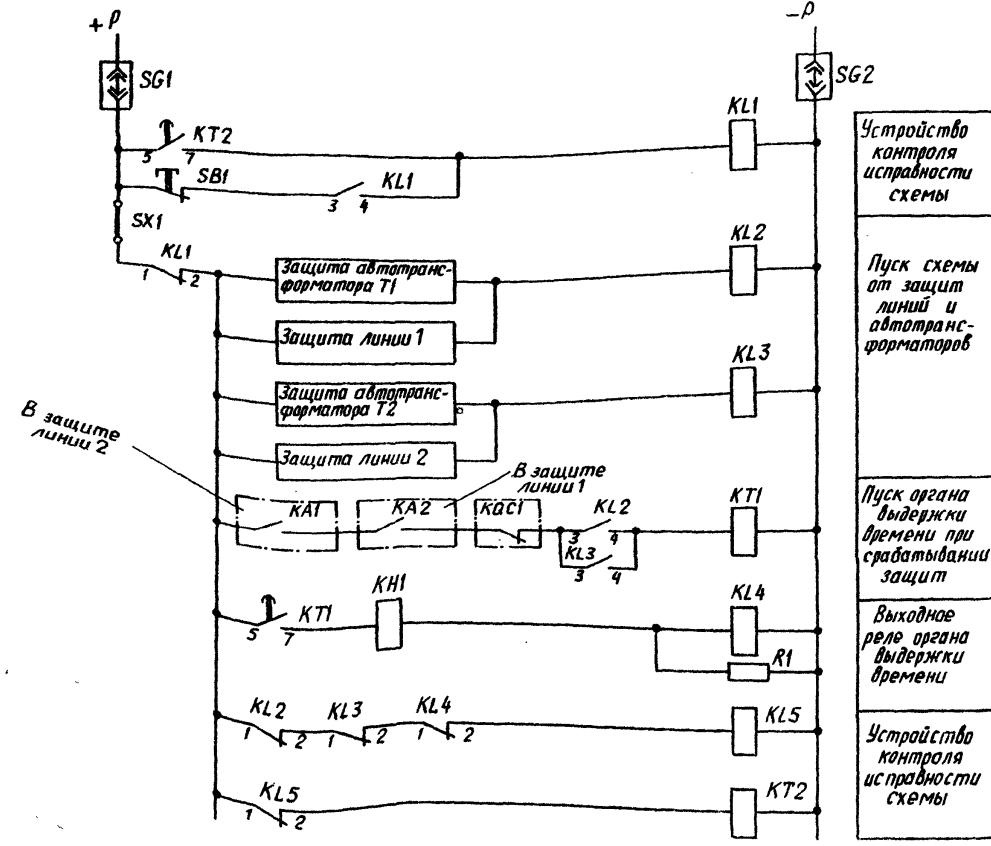 +P
-P
SG1
SG2
KT2
5 7
KL1
SB1
KL1
3 4
SX1
KL1
1 2
Защита автотранс-
форматора T1
KL2
Защита линии 1
Защита автотранс-
форматора T2
KL3
Защита линии 2
В защите
линии 2
В защите
линии 1
KA1
KA2
KQC1
KL2
3 4
KL3
3 4
KT1
KT1
5 7
KH1
KL4
R1
KL2
1 2
KL3
1 2
KL4
1 2
KL5
KL5
1 2
KT2
Устройство
контроля
исправности
схемы
Пуск схемы
от защит
линий и
автотранс-
форматоров
Пуск органа
выдержки
времени при
срабатывании
защит
Выходное
реле органа
выдержки
времени
Устройство
контроля
исправности
схемы